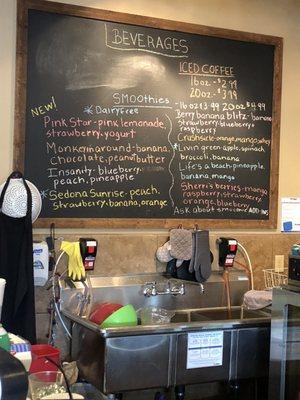 BEVERAGES
ICED COFFEE
16oz - $2.99
20oz - $3.99
SMOOTHIES
16oz $3.99 20oz $4.99
* Dairy Free
NEW!
Pink Star - pink lemonade,
strawberry, yogurt
Monkeyin around - banana,
Chocolate, peanut butter
Insanity - blueberry,
peach, pineapple
* Sedona Sunrise - peach,
strawberry, banana, orange
Berry banana blitz - banana
Strawberry, blueberry,
raspberry
Crushicle - orange, mango, whey
* Livin green - apple, spinach,
broccoli, banana
Life's a beach - pineapple,
banana, mango
Sherri's berries - mango,
raspberry, blueberry,
strawberry, orange
Ask about smoothie ADD INS